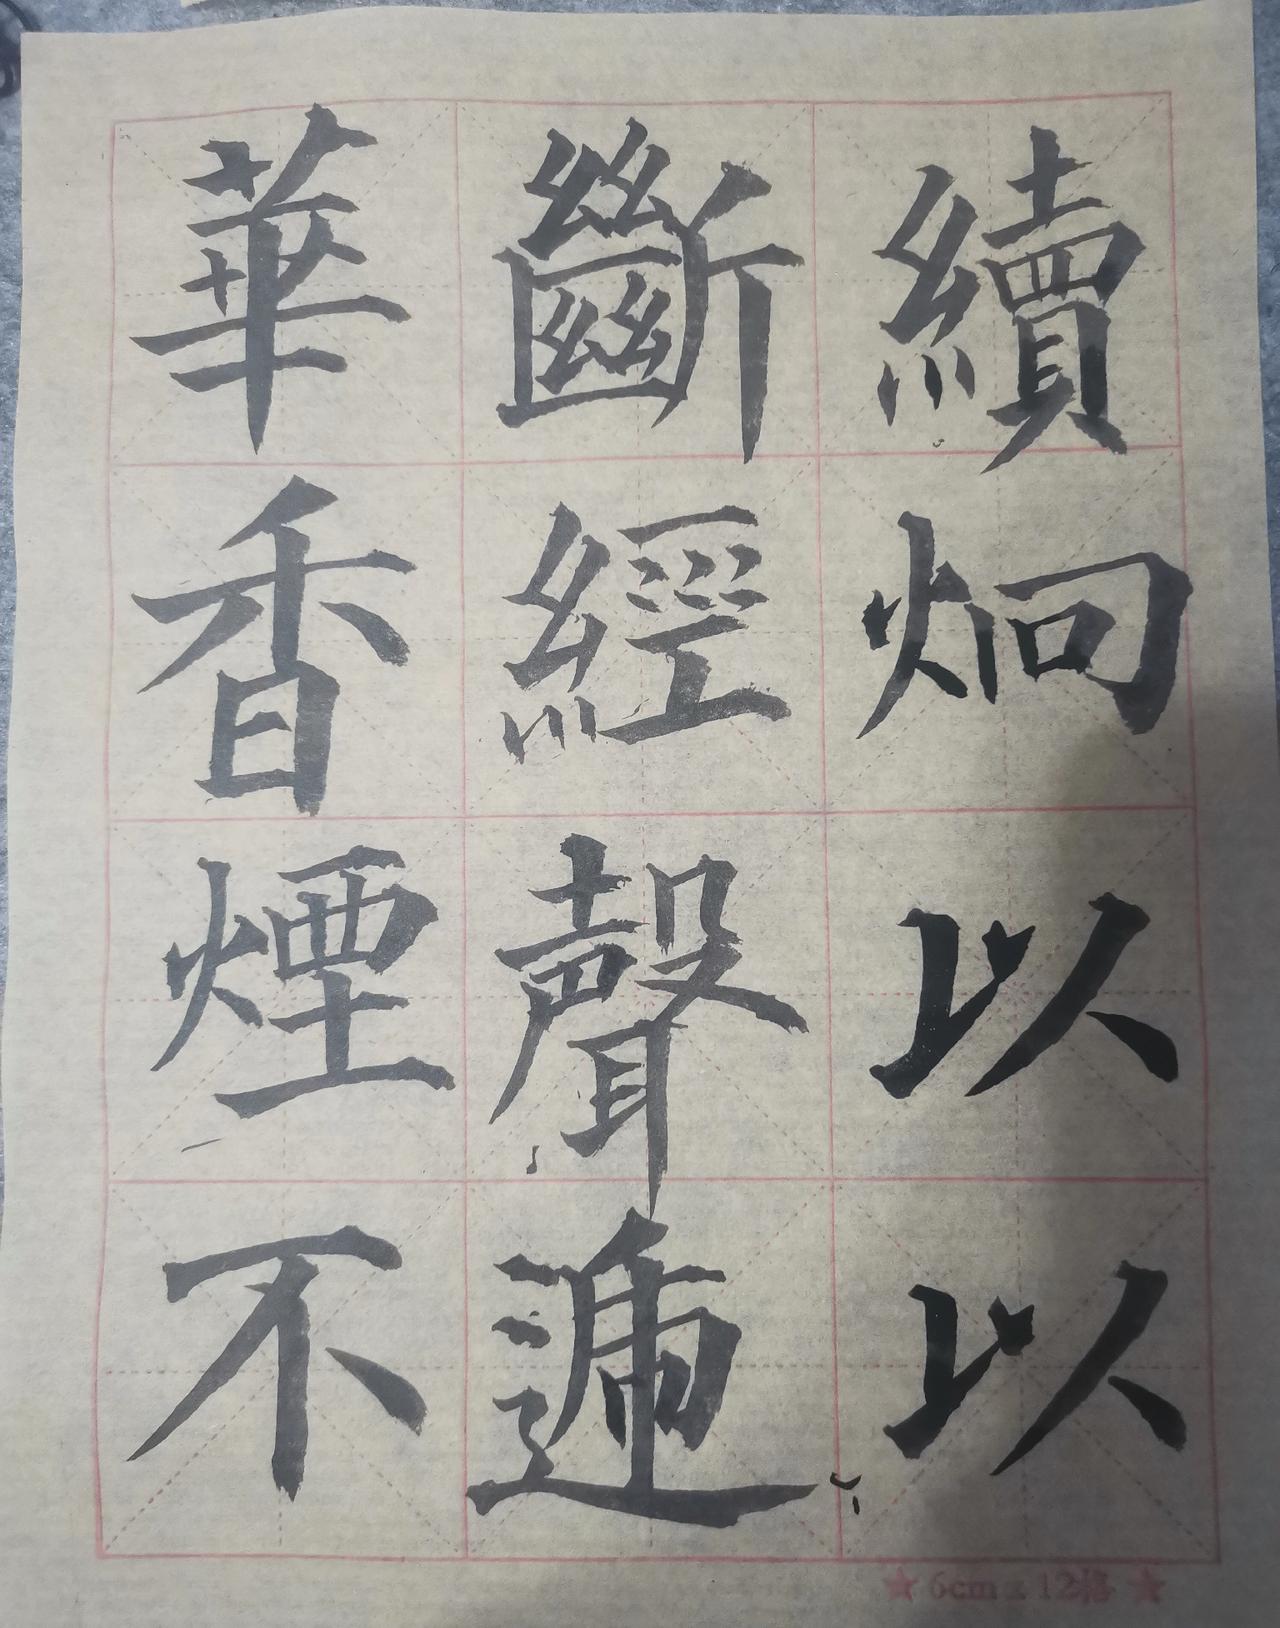 華香煙不
斷經聲遞
續炯以以
★ 6cm x 12格 ★